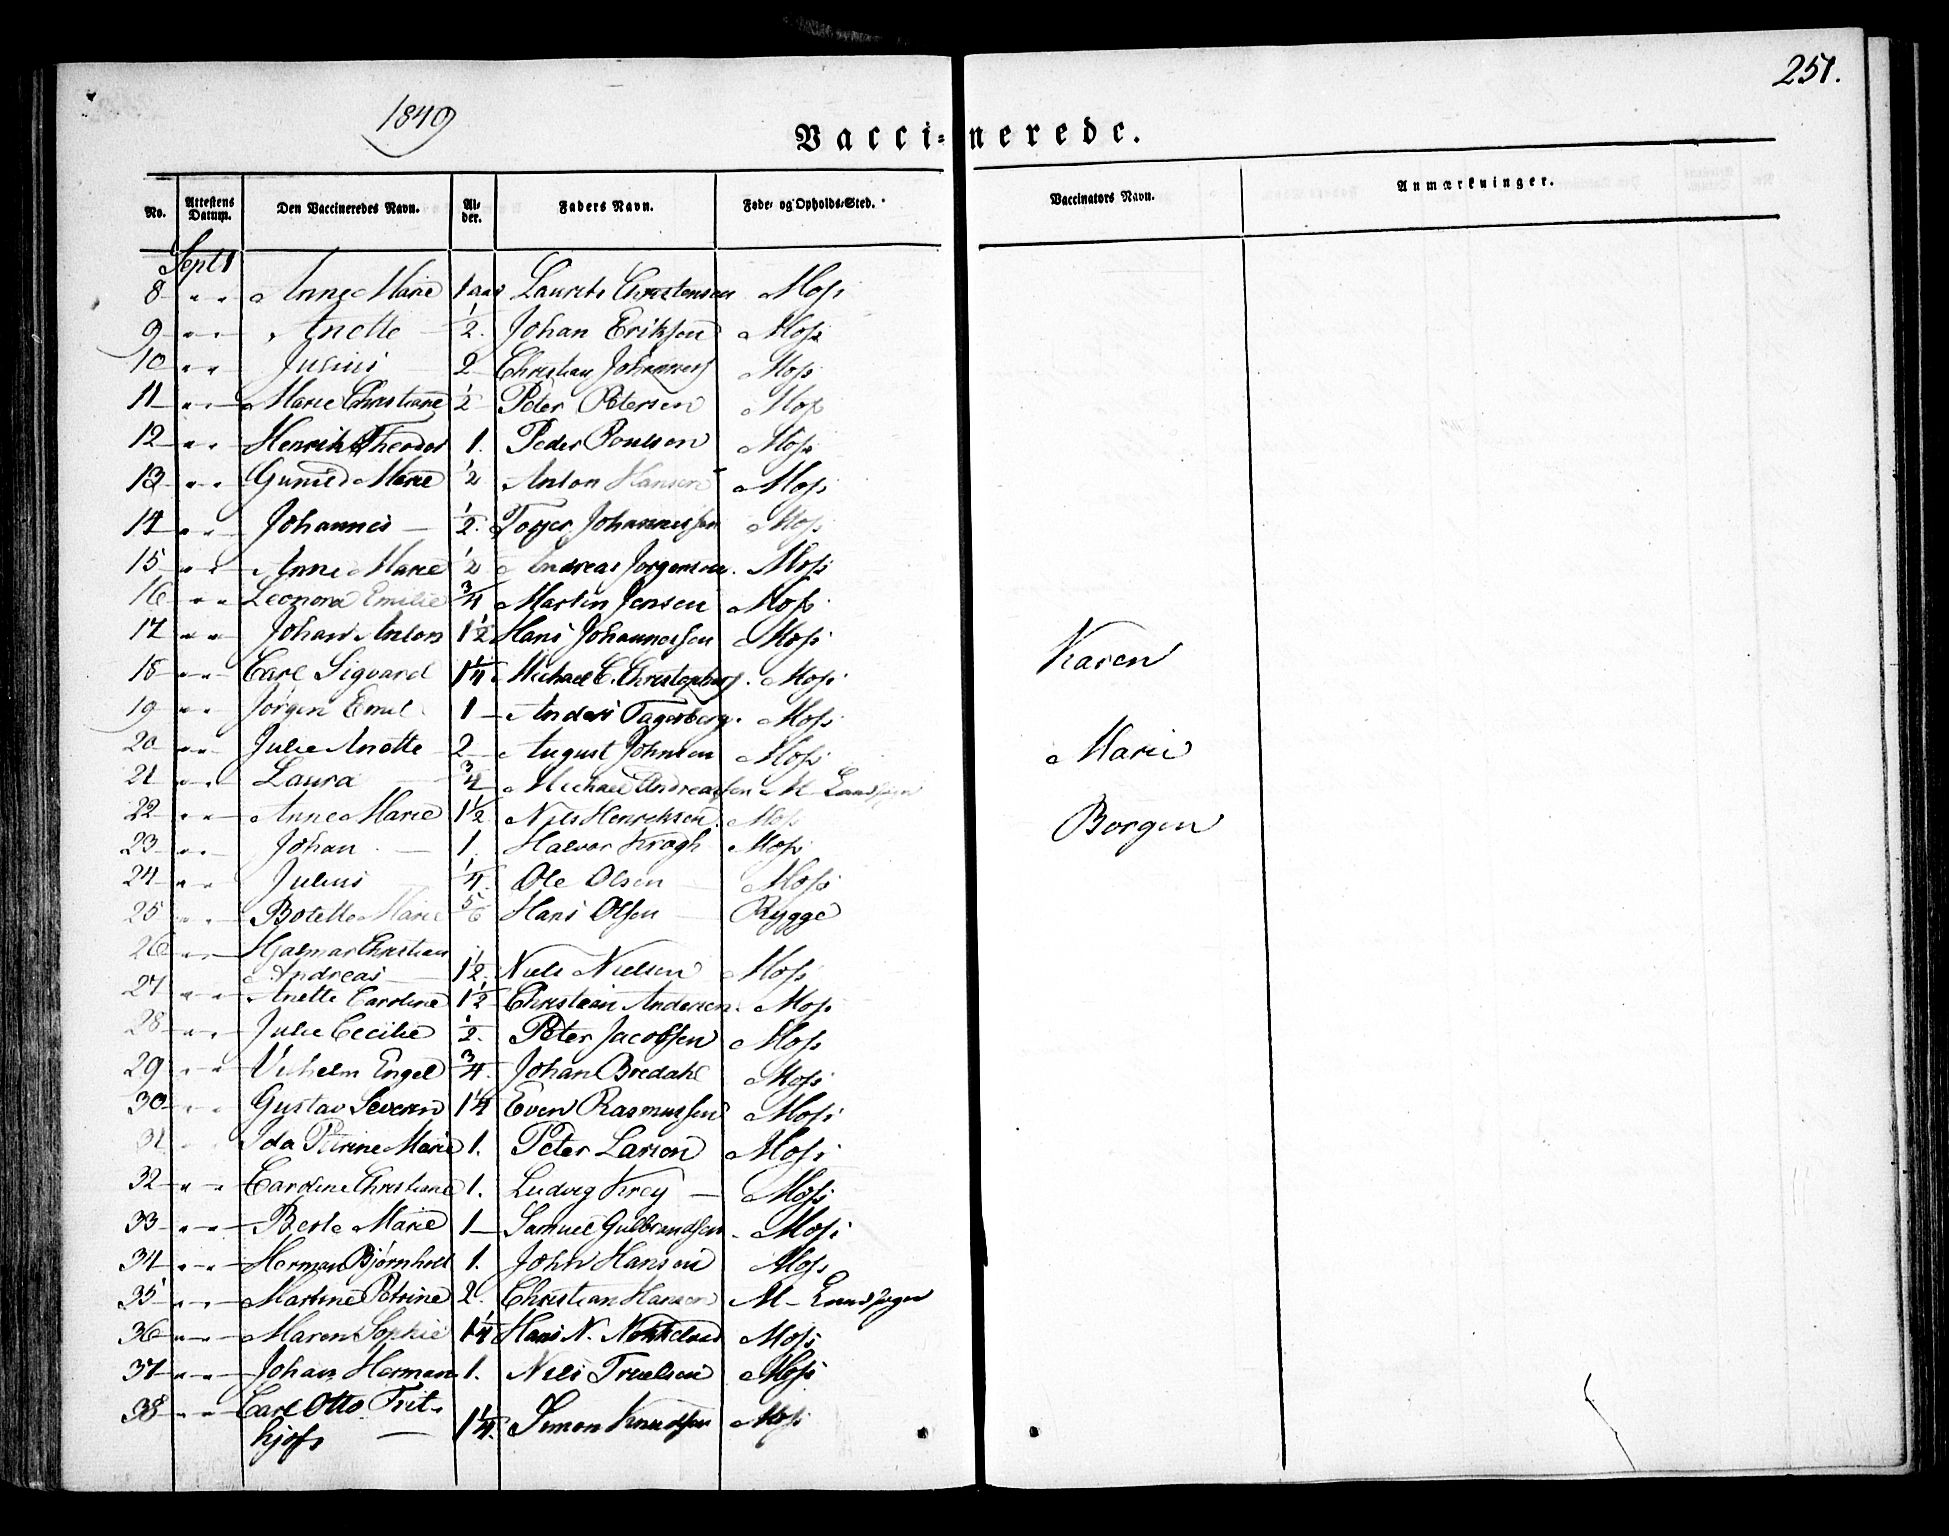 251.
1849
Vacci-nerede.
No. Attestens Datum. Den Vaccineredes Navn. Alder. Faders Navn. Føde- og Opholds-Sted. Vaccinators Navn. Anmærkninger.
Sept 1
8 " " Anne Marie 1 aar Laurits Christensen Moss
9 " " Anette 1/2. Johan Eriksen Moss
10 " " Julius 2 Christian Johannes Moss
11 " " Marie Christiane 1/2 Peter Petersen Moss
12 " " Henrik Theodor 1. Peder Poulsen Moss
13 " " Gunild Marie 1/2 Anton Hansen Moss
14 " " Johannes 1/2. Toger Johannessen Moss
15 " " Anne Marie 1/2 Andreas Jørgensen. Moss
16 " " Leonora Emilie 3/4 Martin Jensen Moss
17 " " Johan Anton 1 1/2 Hans Johannessen Moss
Karen
18 " " Carl Sigvard 1 1/4. Michael C. Christophers. Moss
19 " " Jørgen Emil 1 Anders Fagerberg. Moss
20 " " Julie Anette 2 August Johnsen Moss
Marie
21 " " Laura 3/4 Michael Andreassen M- Landsogn
22 " " Anne Marie 1 1/2 Nils Henriksen. Moss
Borgen
23 " " Johan 1. Halvor Kragh Moss
24 " " Julius 1/4. Ole Olsen Moss
25 " " Botelle Marie 5/6 Hans Olsen Rygge
26 " " Hjalmar Christian
Andreas 1 1/2. Niels Nielsen Moss
27 " " Anette Caroline 1 1/2 Christian Andersen. Moss
28 " " Julie Cecilie 1/2. Peter Jacobsen Moss
29 " " Vilhelm Engel 3/4. Johan Bredahl Moss
30 " " Gustav Severin 1 1/4 Even Rasmussen Moss
31 " " Ida Petrine Marie 1. Peter Larsen Moss
32 " " Caroline Christiane 1. Ludvig Krey Moss
33 " " Berte Marie 1 Samuel Gulbrandsen. Moss
34 " " Herman Bjørnholt 1. John Hansen Moss
35 " " Martine Petrine 2. Christian Hansen M- Landsogn
36 " " Maren Sophie 1 1/4 Hans N. Moss
37 " " Johan Herman 1. Nils Truelsen Moss
38 " " Carl Otto Frit-
hjof 1 1/4. Simon Knudsen Moss